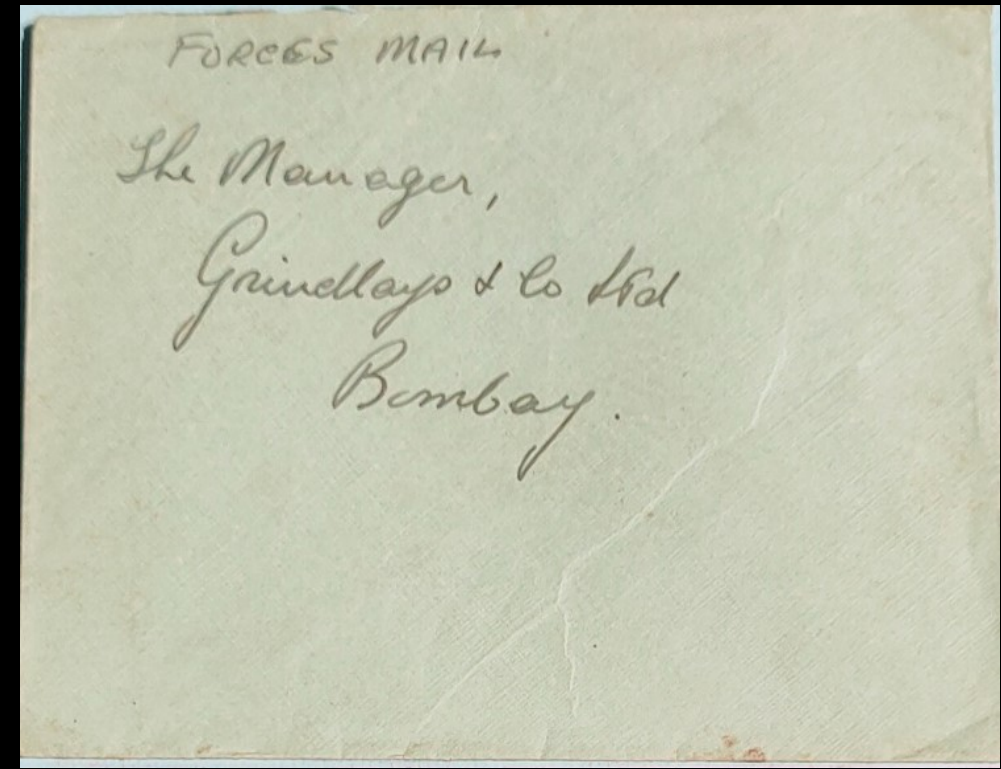 FORCES MAIL
The Manager,
Grindlays & Co Ltd
Bombay.